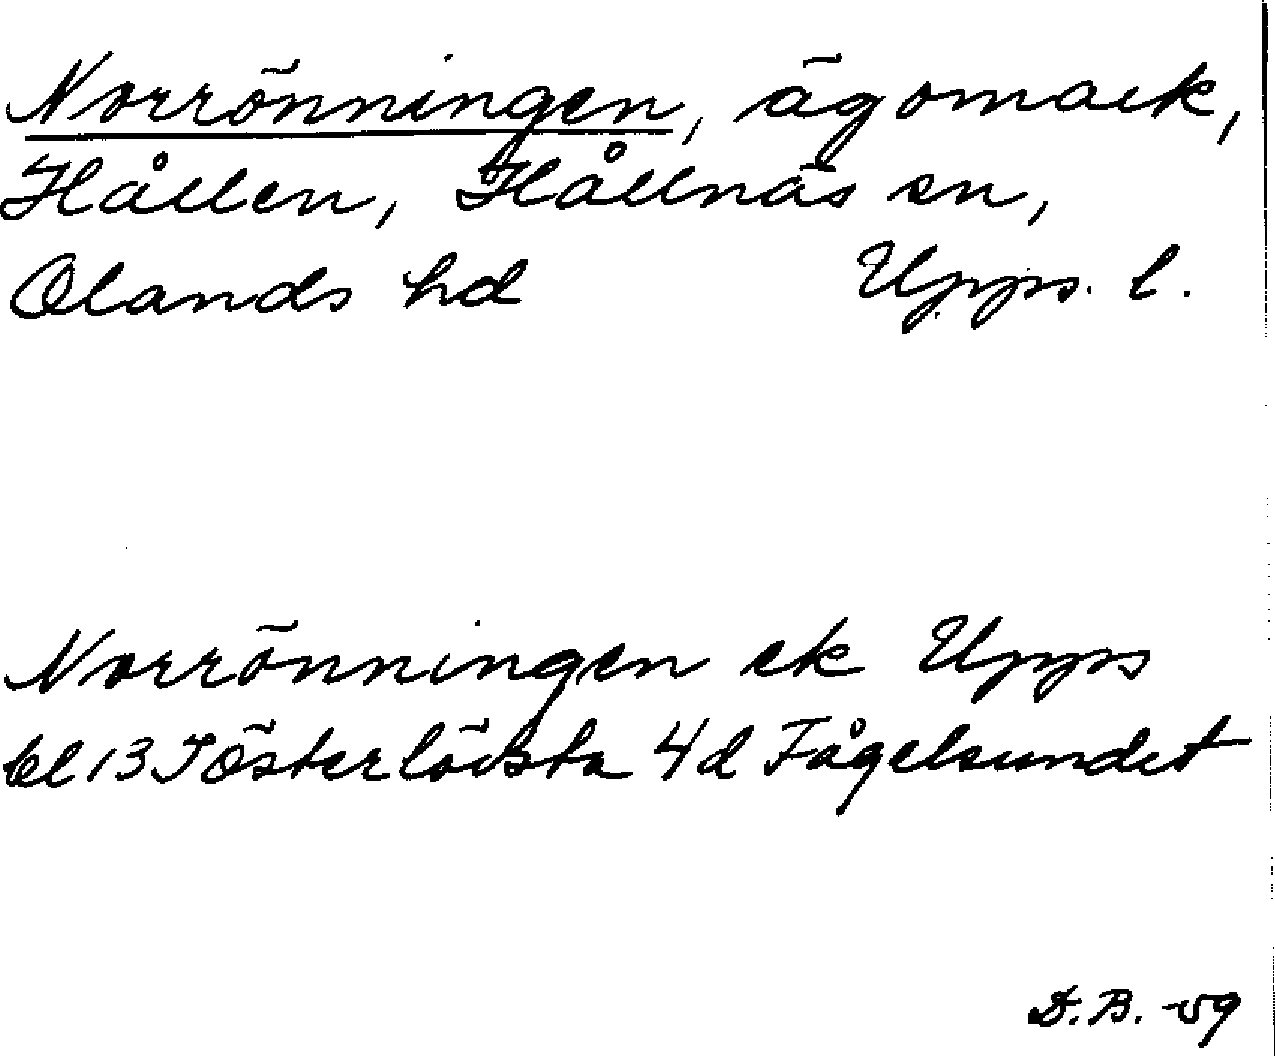 Norrönningen, ägomark,
Hållen, Hållnäs sn,
Olands hd Upps. l.
Norrönningen ek Upps
bl 13 I Österlövsta 4d Fågelsundet
D.B. -59